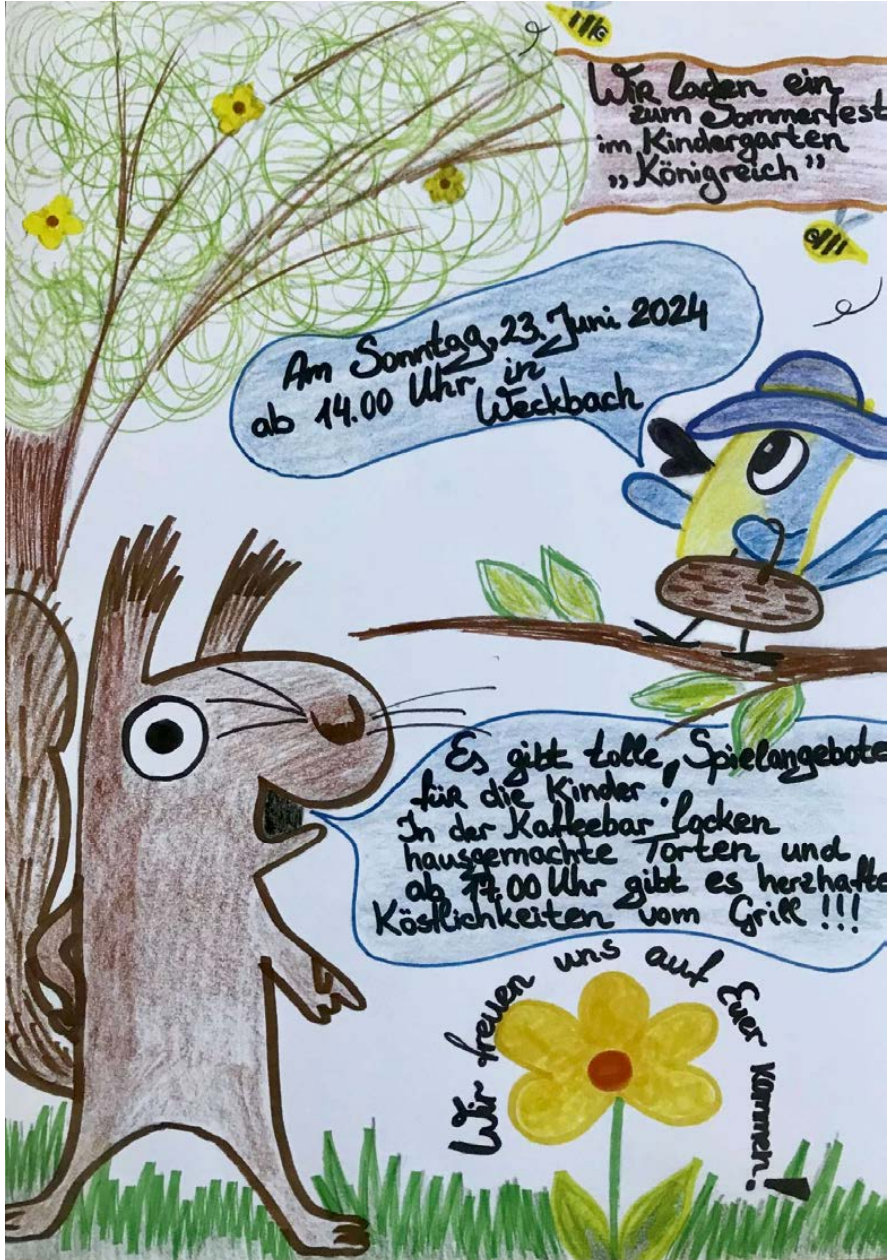 Wir laden ein
zum Sommerfest
im Kindergarten
„Königreich”
Am Sonntag, 23. Juni 2024
ab 14.00 Uhr in
Weckbach
Es gibt tolle Spielangebote
für die Kinder!
In der Kaffeebar locken
hausgemachte Torten und
ab 17.00 Uhr gibt es herzhafte
Köstlichkeiten vom Grill !!!
Wir freuen uns auf Euer Kommen!